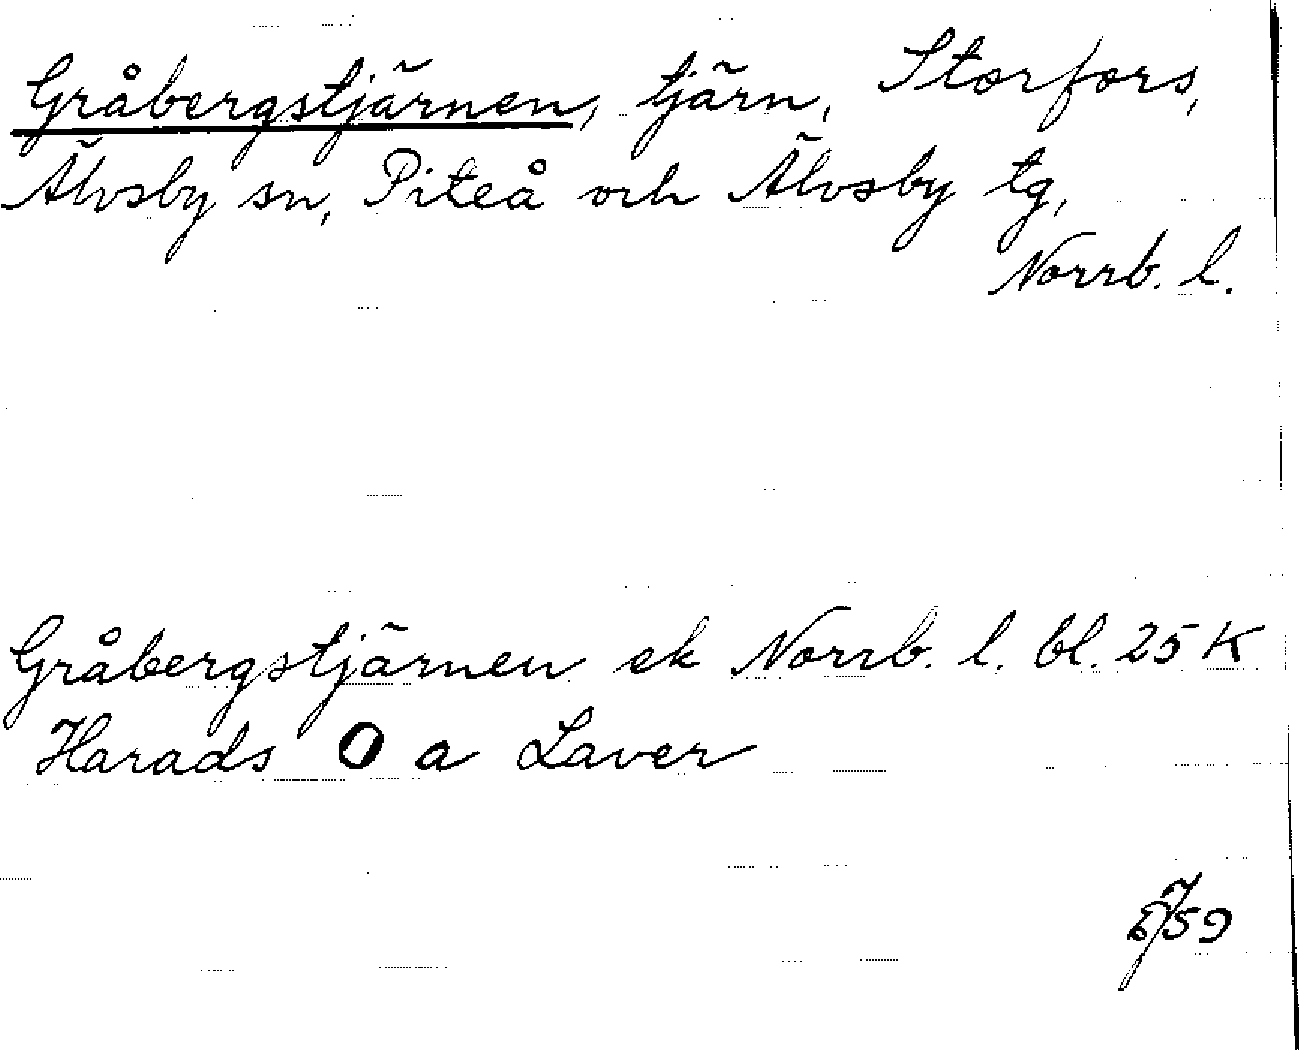 Gråbergstjärnen, tjärn, Storfors,
Älvsby sn, Piteå och Älvsby tg,
Norrb. l.
Gråbergstjärnen ek Norrb. l. bl. 25 K
Harads O a Laver